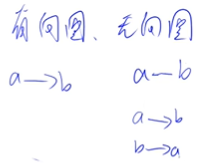 有向图、无向图
a→b a—b
a→b
b→a